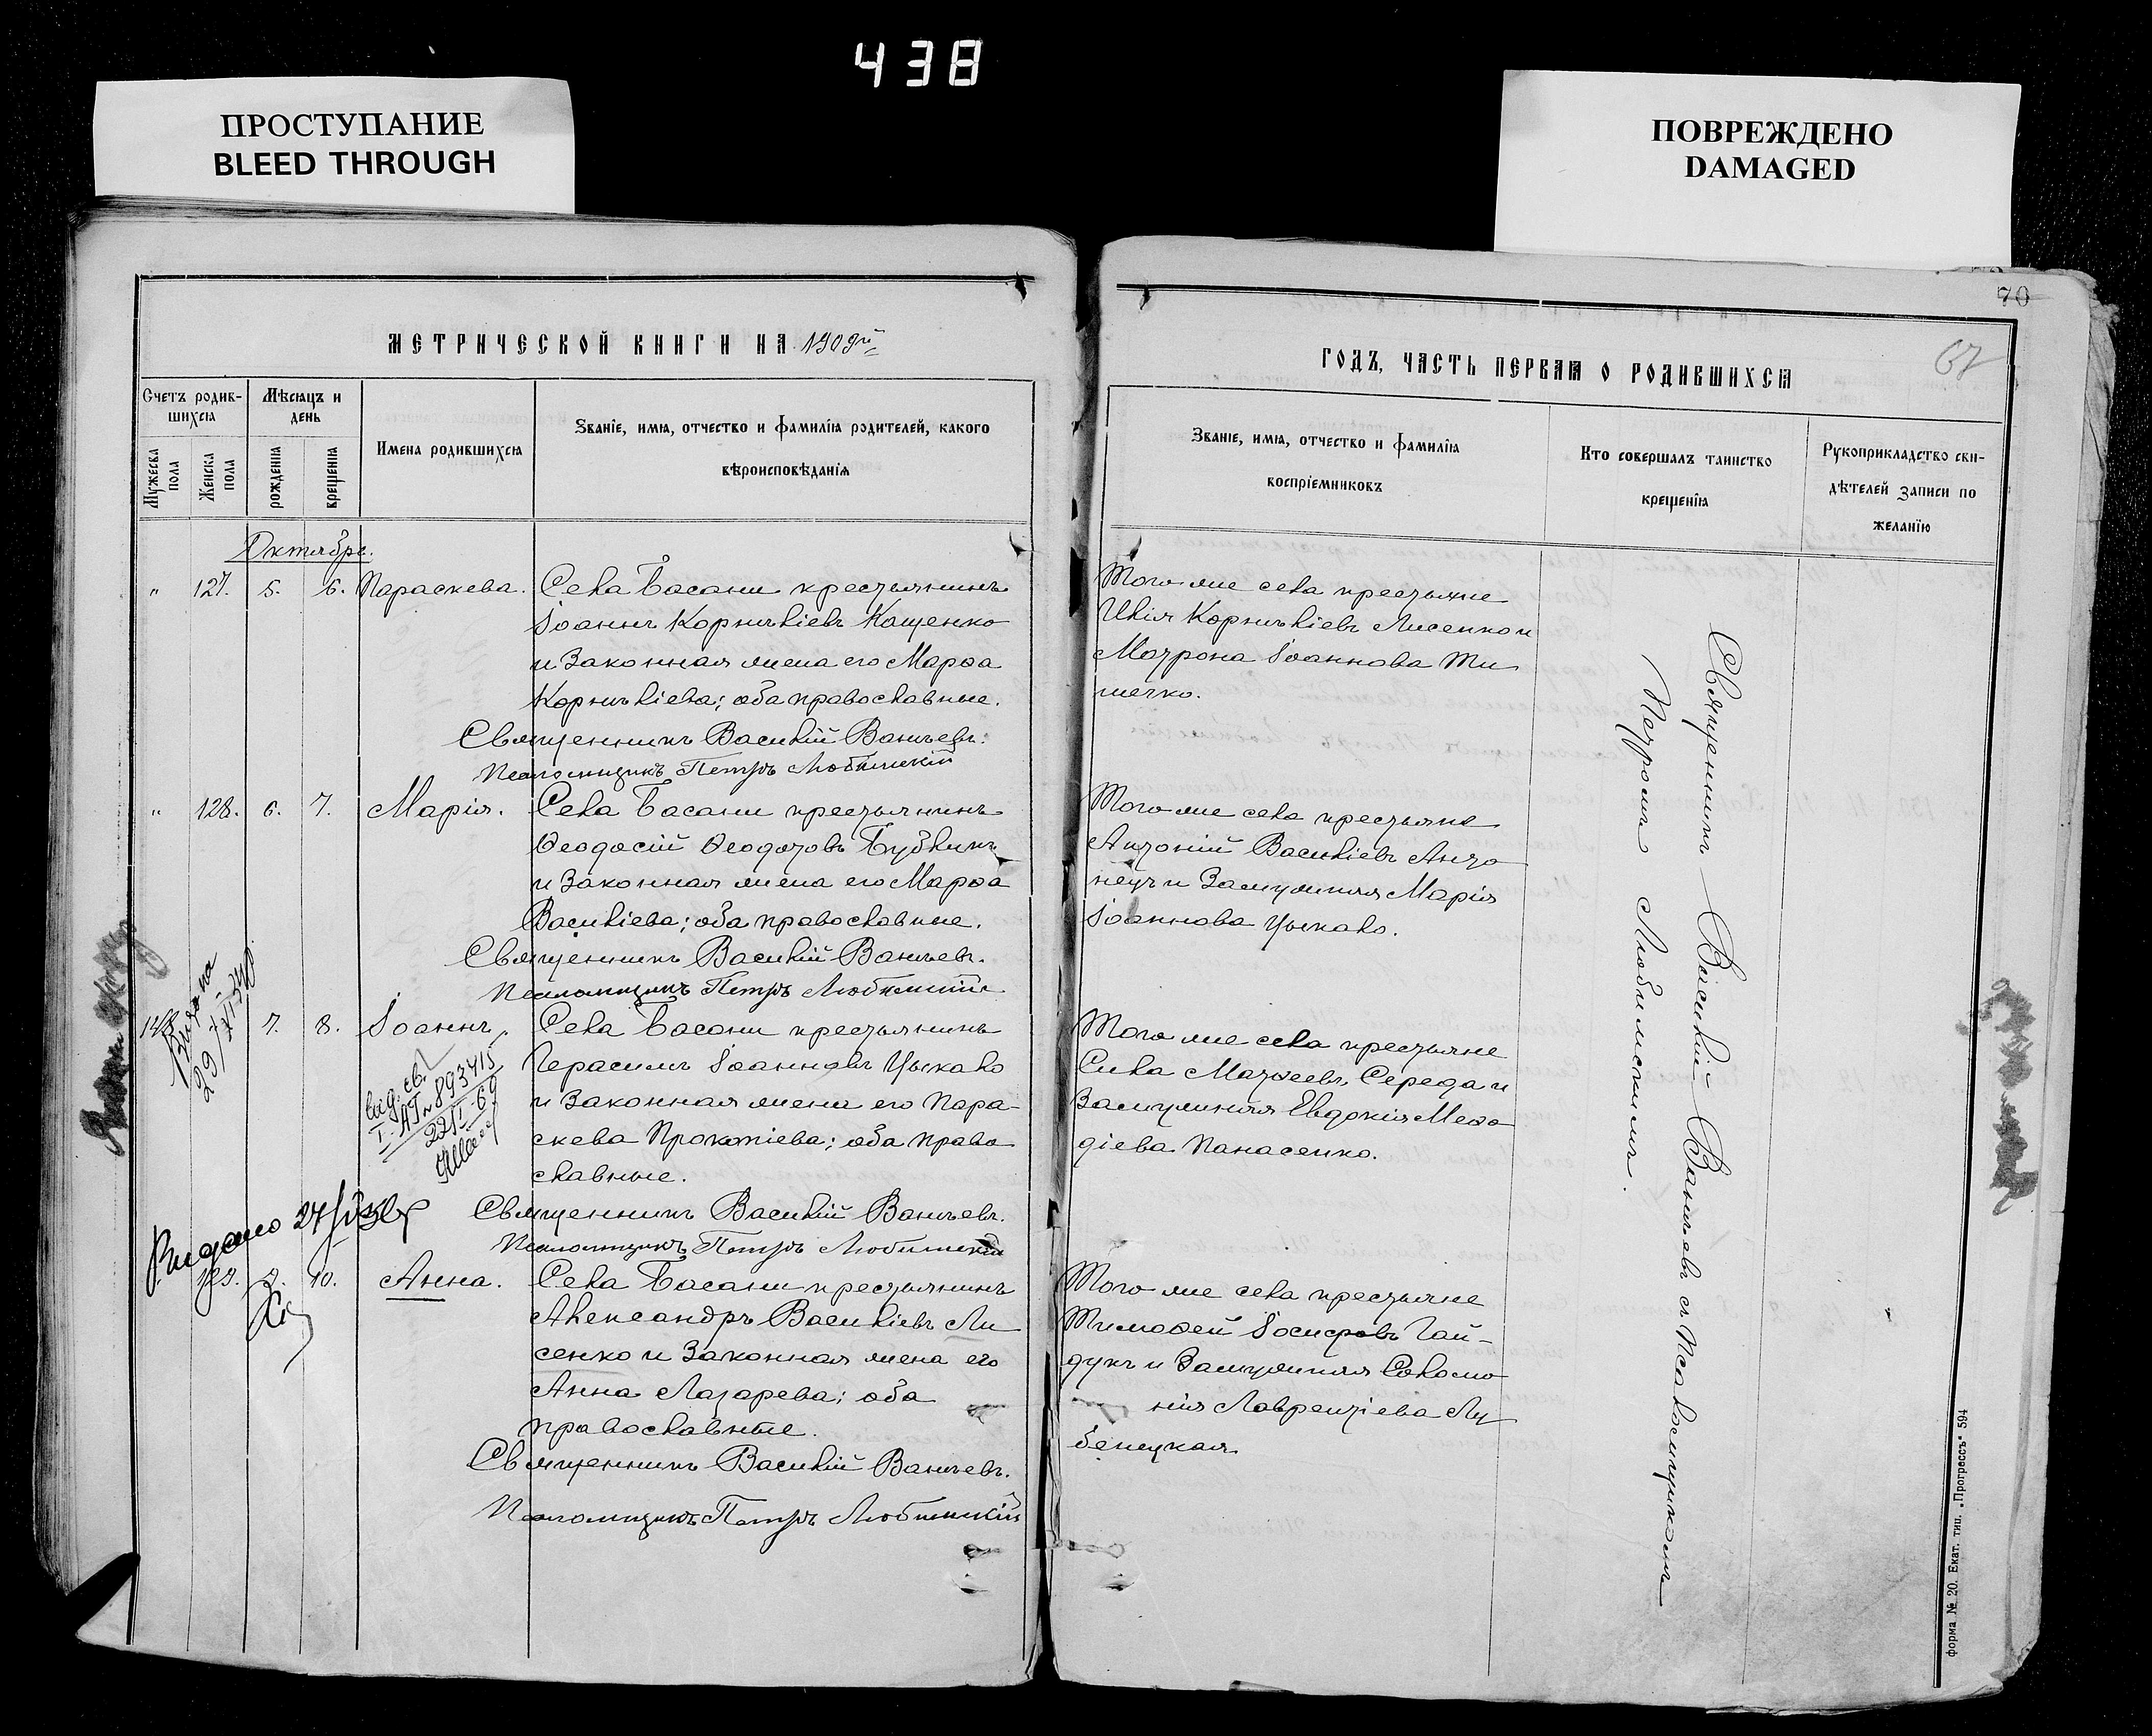 438
ПРОСТУПАНИЕ
BLEED THROUGH
ПОВРЕЖДЕНО
DAMAGED
70
67
МЕТРИЧЕСКОЙ КНИГИ НА 1909й
ГОДЪ, ЧАСТЬ ПЕРВАЯ О РОДИВШИХСЯ
Счетъ родив-
шихся
Мужеска пола
Женска пола
Мѣсяцъ и
день
рожденія
крещенія
Имена родившихся
Званіе, имя, отчество и фамилія родителей, какого
вѣроисповѣданія
Званіе, имя, отчество и фамилія
воспріемниковъ
Кто совершалъ таинство
крещенія
Рукоприкладство сви-
дѣтелей записи по
желанію
Октябрь.
" 127. 5. 6. Параскева. Села Басани крестьянинъ
Іоаннъ Корниліевъ Кащенко
и законная жена его Марѳа
Корниліева; оба православные.
Священникъ Василій Ваничевъ.
Псаломщикъ Петръ Любимскій
Того же села крестьяне
Илія Корниліевъ Лисенко и
Матрона Іоаннова Ти
шечко.
" 128. 6. 7. Марія. Села Басани крестьянинъ
Ѳеодосій Ѳеодотовъ Бубликъ
и законная жена его Марѳа
Василіева; оба православные.
Священникъ Василій Ваничевъ.
Псаломщикъ Петръ Любимскій
Того же села крестьяне
Антоній Василіевъ Анто
нецъ и замужняя Марія
Іоаннова Цыкало.
7. 8. Іоаннъ. Села Басани крестьянинъ
Герасимъ Іоанновъ Цыкало
и законная жена его Пара-
скева Прокопіева; оба право
славные.
Священникъ Василій Ваничевъ.
Псаломщикъ Петръ Любимскій
Того же села крестьяне
Сила Матѳеевъ Середа и
замужняя Евдокія Меѳо
діева Панасенко.
893415
129. 9. 10. Анна. Села Басани крестьянинъ
Александръ Василіевъ Ли
сенко и законная жена его
Анна Лазарева; оба
православные.
Священникъ Василій Ваничевъ.
Псаломщикъ Петръ Любимскій
Того же села крестьяне
Тимоѳей Іосифовъ Гай-
дукъ и замужняя Соломо
нія Лаврентіева Лу
бенецкая.
Священникъ Василій Ваничевъ съ Псаломщикомъ
Петромъ Любимскимъ.
Форма № 20. Екат. тип. „Прогрессъ“ 594